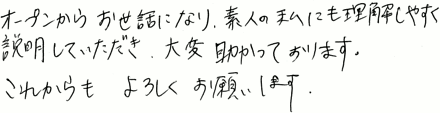 オープンからお世話になり、素人の私にも理解しやすく
説明していただき、大変助かっております。
これからも よろしくお願いします。